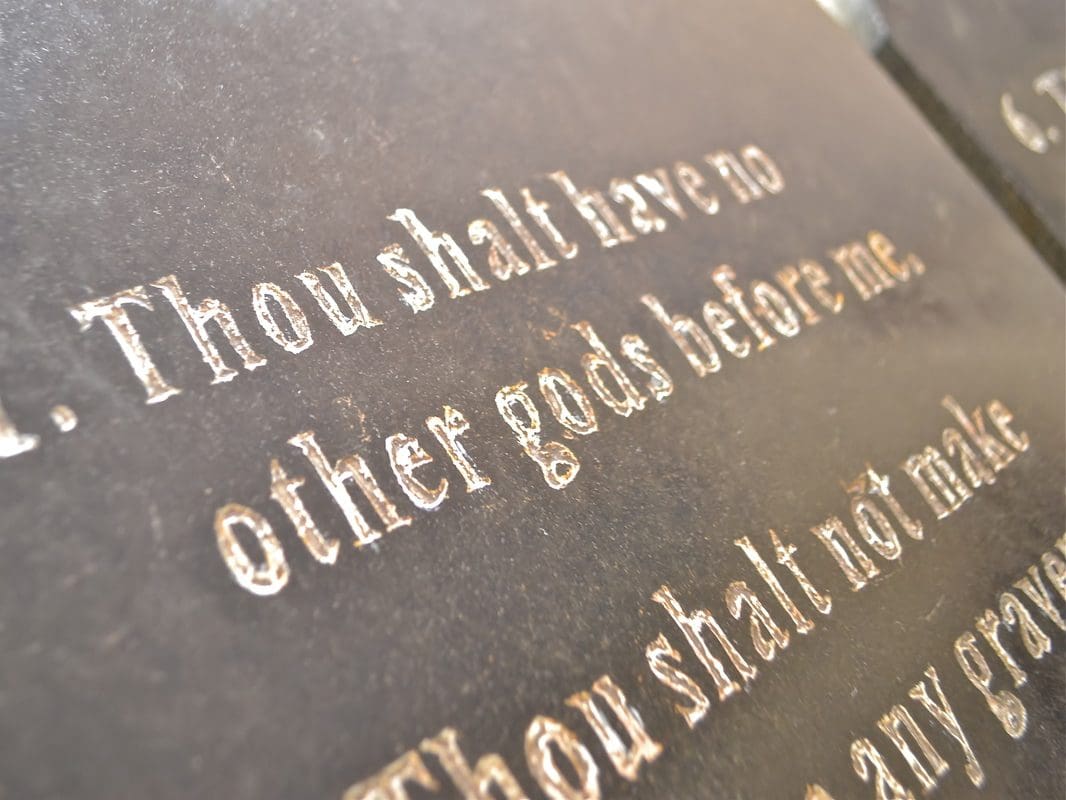 1. Thou shalt have no
other gods before me.
Thou shalt not make
any graven
6.